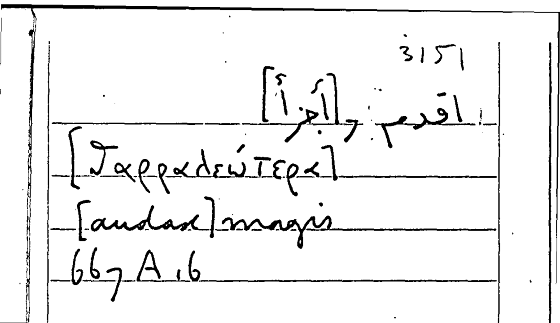 3151
اقدم و [أجرأ]
[θαρραλεώτερα]
[audax] magis
667 A.6